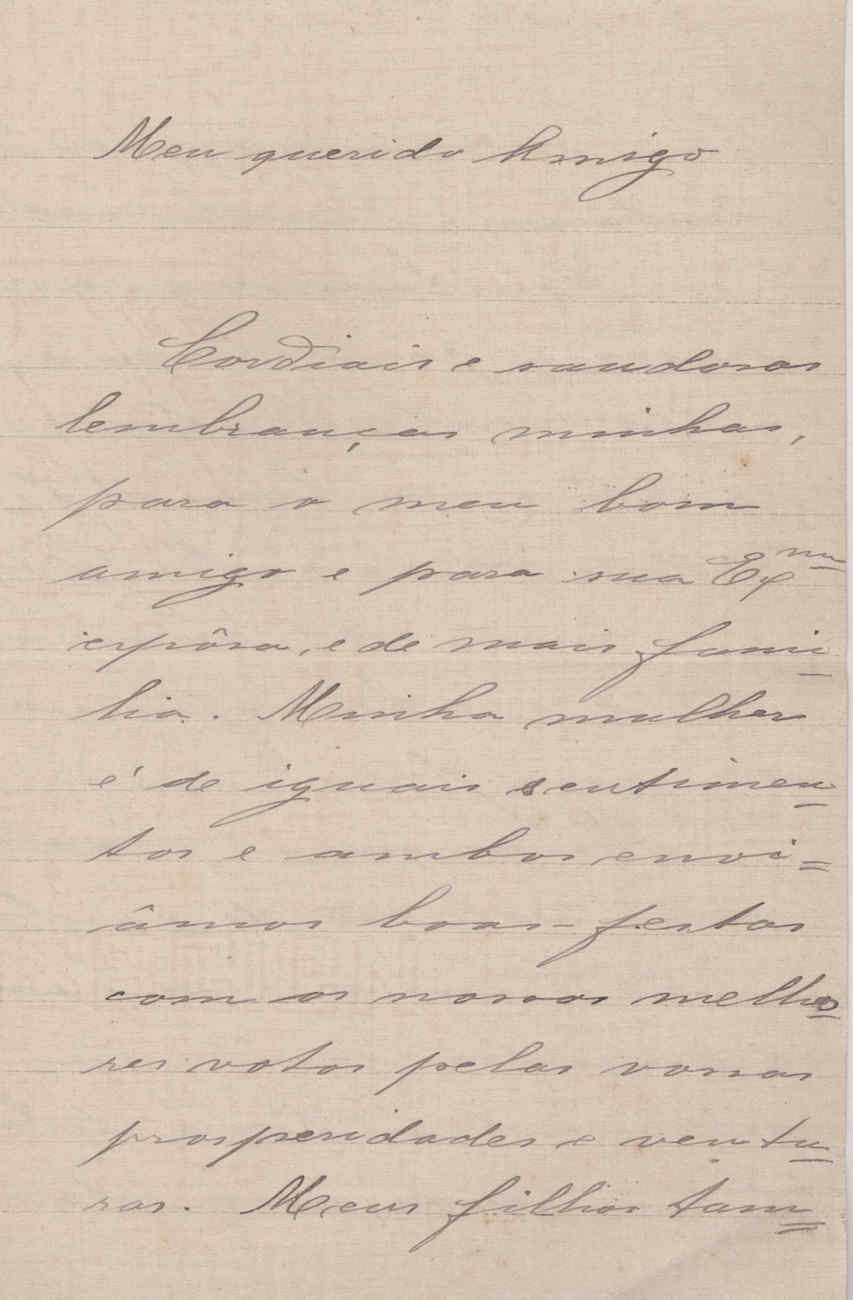 Meu querido Amigo
Cordiais e saudosas
lembranças minhas,
para o meu bom
amigo e para sua Exma
espôsa, e de mais fami-
lia. Minha mulher
é de iguais sentimen-
tos e ambos envi=
âmos boas-festas
com os nossos melho=
res votos pelas vossas
prosperidades e ventu=
ras. Meus filhos tam=